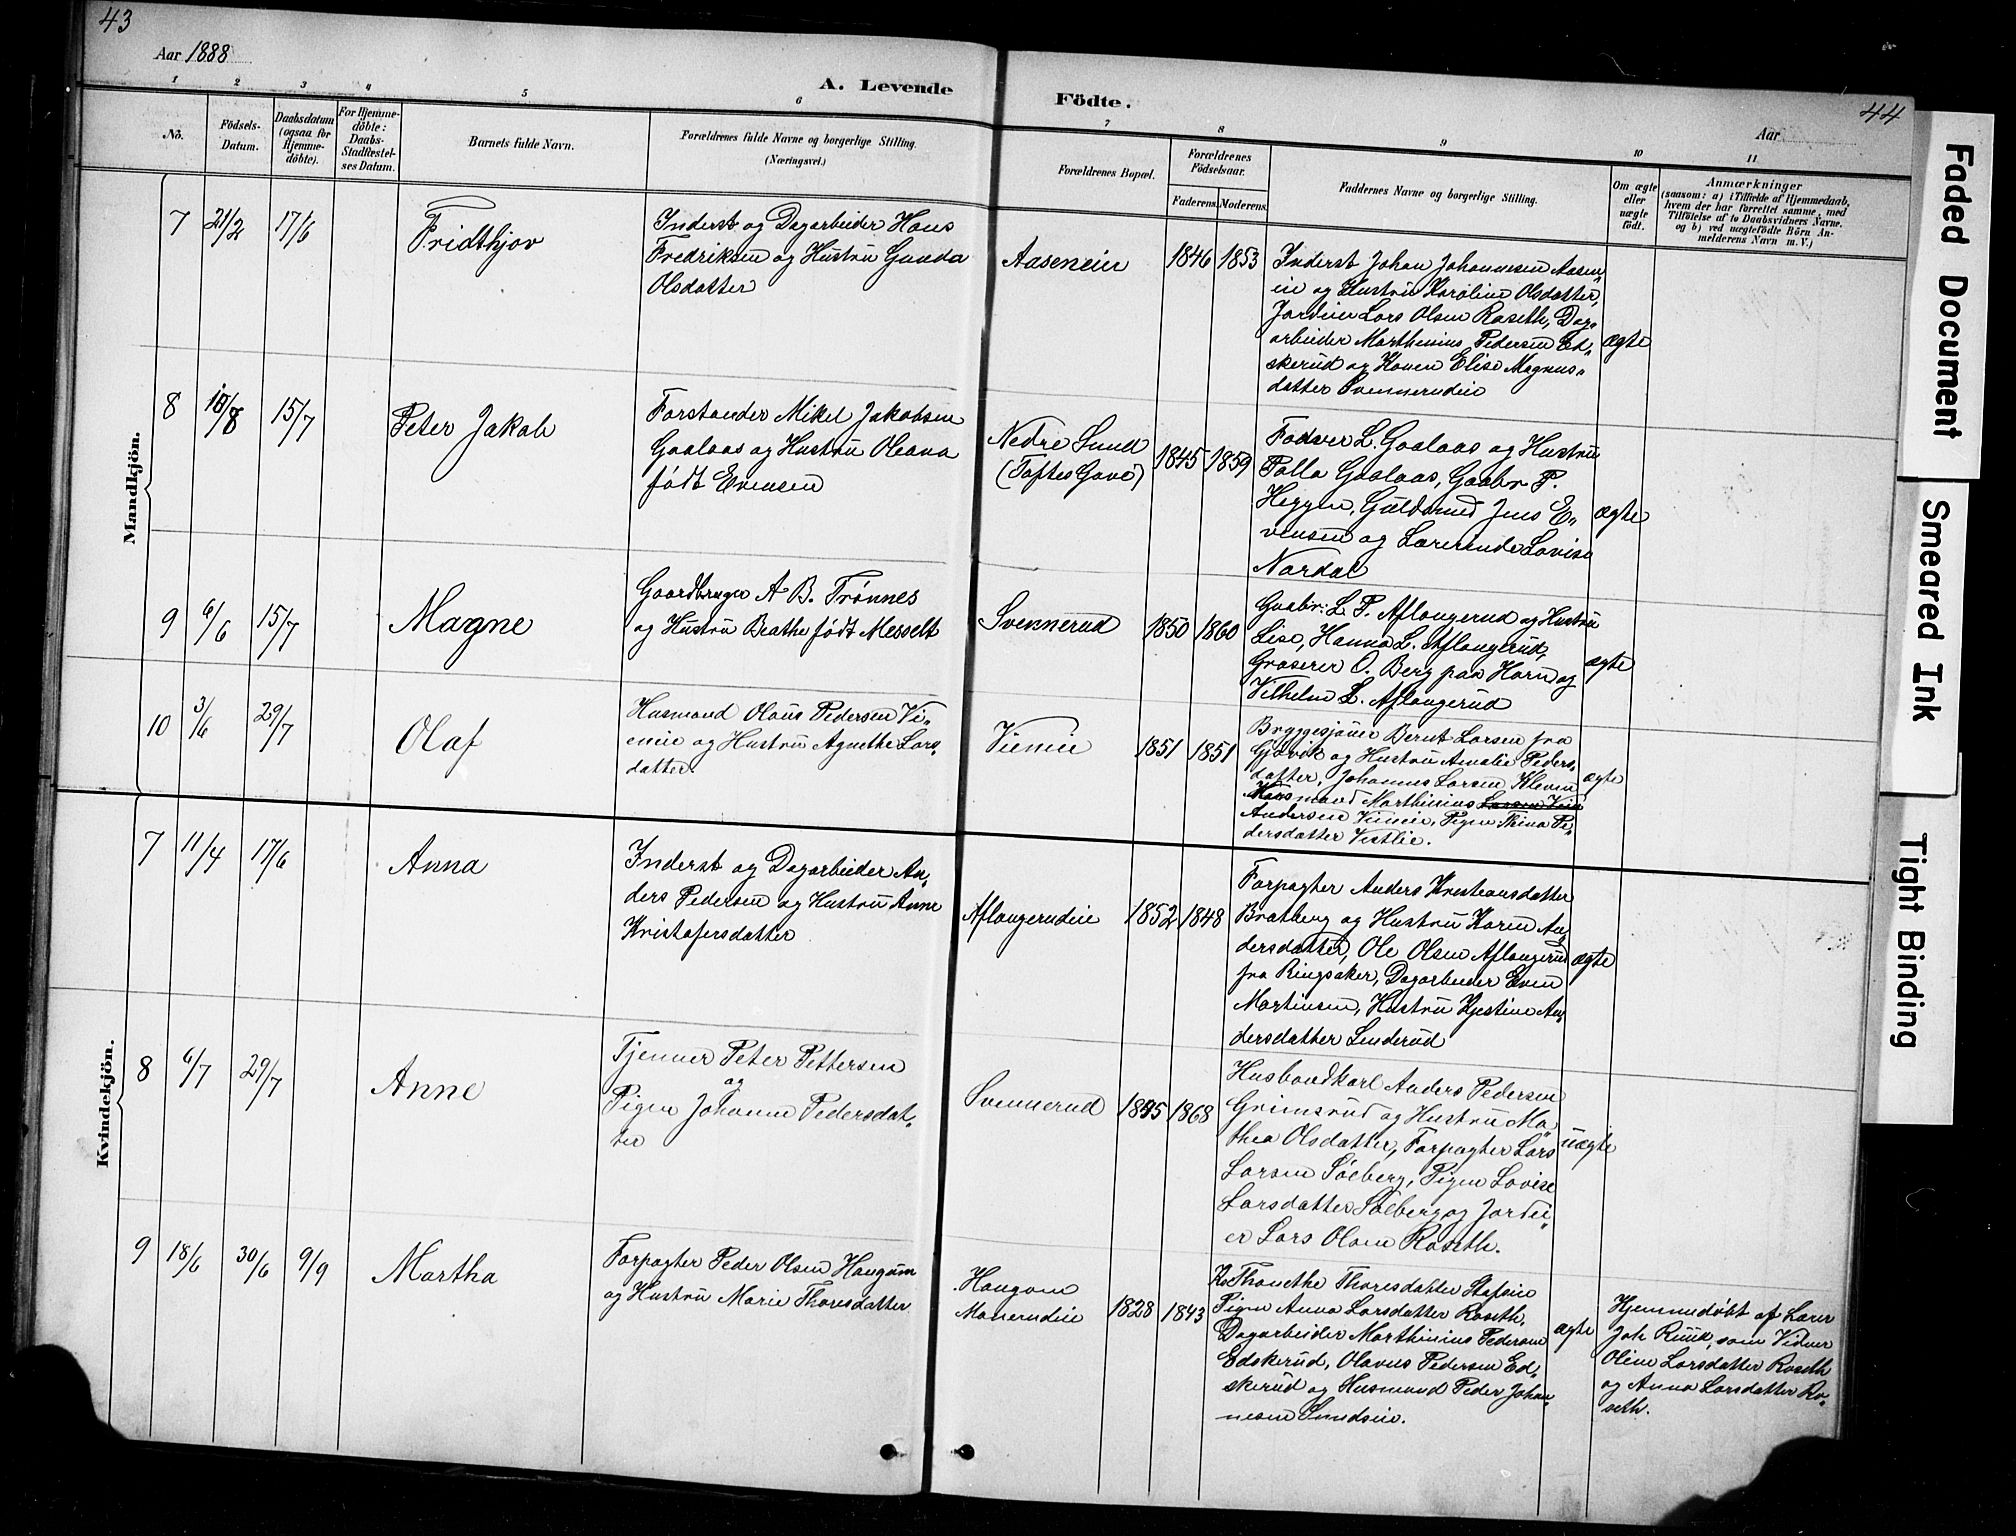 43
Aar 1888
A. Levende
1
2
3
4
5
6
No.
Födsels-
Datum.
Daabsdatum
(ogsaa for
Hjemme-
döbte).
For Hjemme-
döbte:
Daabs-
Stadfæstel-
ses Datum.
Barnets fulde Navn.
Forældrenes fulde Navne og borgerlige Stilling.
(Næringsvei.)
Födte.
44
Aar
7
8
9
10
11
Forældrenes Bopæl.
Forældrenes
Födselsaar.
Faderens.
Moderens.
Faddernes Navne og borgerlige Stilling.
Om ægte
eller
uægte
födt.
Anmærkninger
(saasom: a) i Tilfælde af Hjemmedaab,
hvem der har forrettet samme, med
Tilföielse af to Daabsvidners Navne.
og b) ved uægtefödte Börn An-
melderens Navn m. V.)
Mandkjön.
7
21/2
17/6
Fridthjov
Inderst og Dagarbeider Hans
Fredriksen og Hustru Gunda
Olsdatter
Aaseneie
1846
1853
Inderst Johan Johannesen Aasen„
eie og Hustru Karoline Olsdatter,
Jordeier Lars Olsen Roseth, Dag„
arbeider Marthinius Pedersen Ed„
skerud og Konen Elise Magnus„
datter Svennerudeie
ægte
8
/8
15/7
Peter Jakob
Forstander Mikel Jakobsen
Gaalaas og Hustru Oleana
født Evensen
Nedre Sund
(Toftes Gave)
1845
1859
Fadver L. Gaalaas og Hustru
Palla Gaalaas, Gaabr. P.
Heggen, Guldsmed Jens E„
vensen og Lærerinde Lovise
Nordal
ægte
9
6/6
15/7
Magne
Gaardbruger A B. Trønnes
og Hustru Beathe født Messelt
Svennerud
1850
1860
Gaabr: L. P. Aflangerud og Hustru
Lise, Hanna L. Aflangerud,
Groserer O. Berg paa Horn og
Vilhelm L. Aflangerud
ægte
10
3/6
29/7
Olaf
Husmand Olaus Pedersen Vi„
eneie og Hustru Agnethe Lars„
datter.
Vieneie
1851
1851
Bryggesjouer Bernt Larsen fra
Gjøvik og Hustru Amalie Peders„
datter, Johannes Larsen Kleven
Husmand Marthinius Larsen Viei
Andersen Vieneie, Pigen Stina Pe„
dersdatter Vestlie.
ægte
Kvindekjön.
7
11/4
17/6
Anna
Inderst og Dagarbeider An„
ders Pedersen og Hustru Anne
Kristofersdatter
Aflangerudeie
1852
1848
Forpagter Anders Kristiansdatter
Bratberg og Hustru Karen An„
dersdatter, Ole Olsen Aflangerud
fra Ringsaker, Dagarbeider Even
Martinsen, Hustru Kjestine An„
dersdatter Linderud
ægte
8
6/7
29/7
Anne
Tjener Peter Pettersen
og
Pigen Johanne Pedersdat„
ter
Svennerud
1868
Husbondkarl Anders Pedersen
Grimsrud og Hustru Ma„
thea Olsdatter, Forpagter Lars
Larsen Sølberg, Pigen Lovise
Larsdatter Sølberg og Jordei„
er Lars Olsen Roseth.
uægte
9
18/6
30/6
9/9
Martha
Forpagter Peder Olsen Haugum
og Hustru Marie Thoresdatter
Haugom
Monerudeie
1828
1843
Thonethe Thoresdatter Stafseie
Pigen Anna Larsdatter Roseth,
Dagarbeider Marthinius Pedersen
Edskerud, Olaves Pedersen Ed„
skerud og Husmand Peder Johan„
nesen Sundseie.
ægte
Hjemmedøbt af Lærer
Joh Ruuk, som Vidner
Oline Larsdatter Roseth
og Anna Larsdatter Ro„
seth.
Faded Document
Smeared Ink
Tight Binding